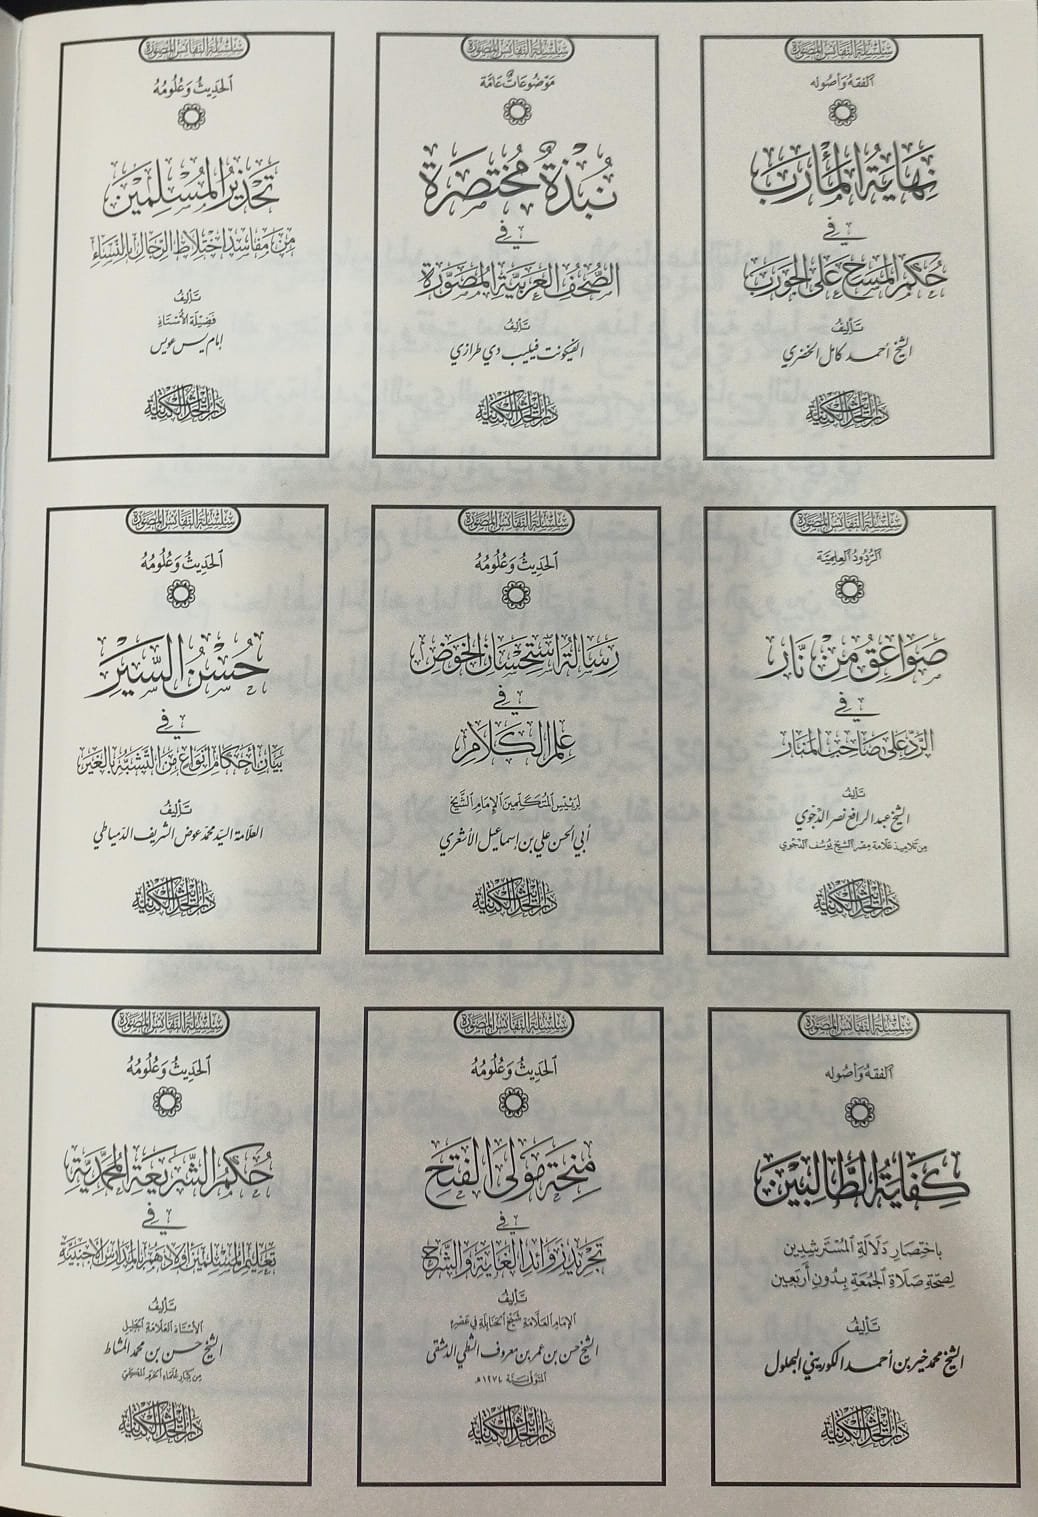 سلسلة النفائس المصورة
الفقه وأصوله
نهاية المأرب
في
حكم المسح على الجورب
تأليف
الشيخ أحمد كامل الخضري
سلسلة النفائس المصورة
موضوعات عامة
نبذة مختصرة
في
الصحف العربية المصورة
تأليف
الفيكونت فيليب دي طرازي
سلسلة النفائس المصورة
الحديث وعلومه
تحذير المسلمين
من مفاسد اختلاط الرجال بالنساء
تأليف
فضيلة الأستاذ
إمام يس عويس
سلسلة النفائس المصورة
الردود العلمية
صواعق من نار
في
الرد على صاحب المنار
تأليف
الشيخ عبد الرافع نصر الدجوي
من تلاميذ علامة مصر الشيخ يوسف الدجوي
سلسلة النفائس المصورة
الحديث وعلومه
رسالة استحسان الخوض
في
علم الكلام
لرئيس المتكلمين الإمام الشيخ
أبي الحسن علي بن إسماعيل الأشعري
سلسلة النفائس المصورة
الحديث وعلومه
حسن السير
في
بيان أحكام أنواع من التشبه بالغير
تأليف
العلامة السيد محمد عوض الشريف الدمياطي
سلسلة النفائس المصورة
الفقه وأصوله
كفاية الطالبين
باختصار دلالة المسترشدين
لصحة صلاة الجمعة بدون أربعين
تأليف
الشيخ محمد خير بن أحمد الكوريني البهلول
سلسلة النفائس المصورة
الحديث وعلومه
منحة مولى الفتح
في
تجريد زوائد الغاية والشرح
تأليف
الإمام العلامة شيخ الحنابلة في عصره
الشيخ حسن بن عمر بن معروف الشطي الدمشقي
المتوفى سنة ١٢٧٤هـ
سلسلة النفائس المصورة
الحديث وعلومه
حكم الشريعة المحمدية
في
تعليم المسلمين أولادهم بالمدارس الأجنبية
تأليف
الأستاذ العلامة الجليل
الشيخ حسن بن محمد المشاط
من كبار علماء الحرم المكي